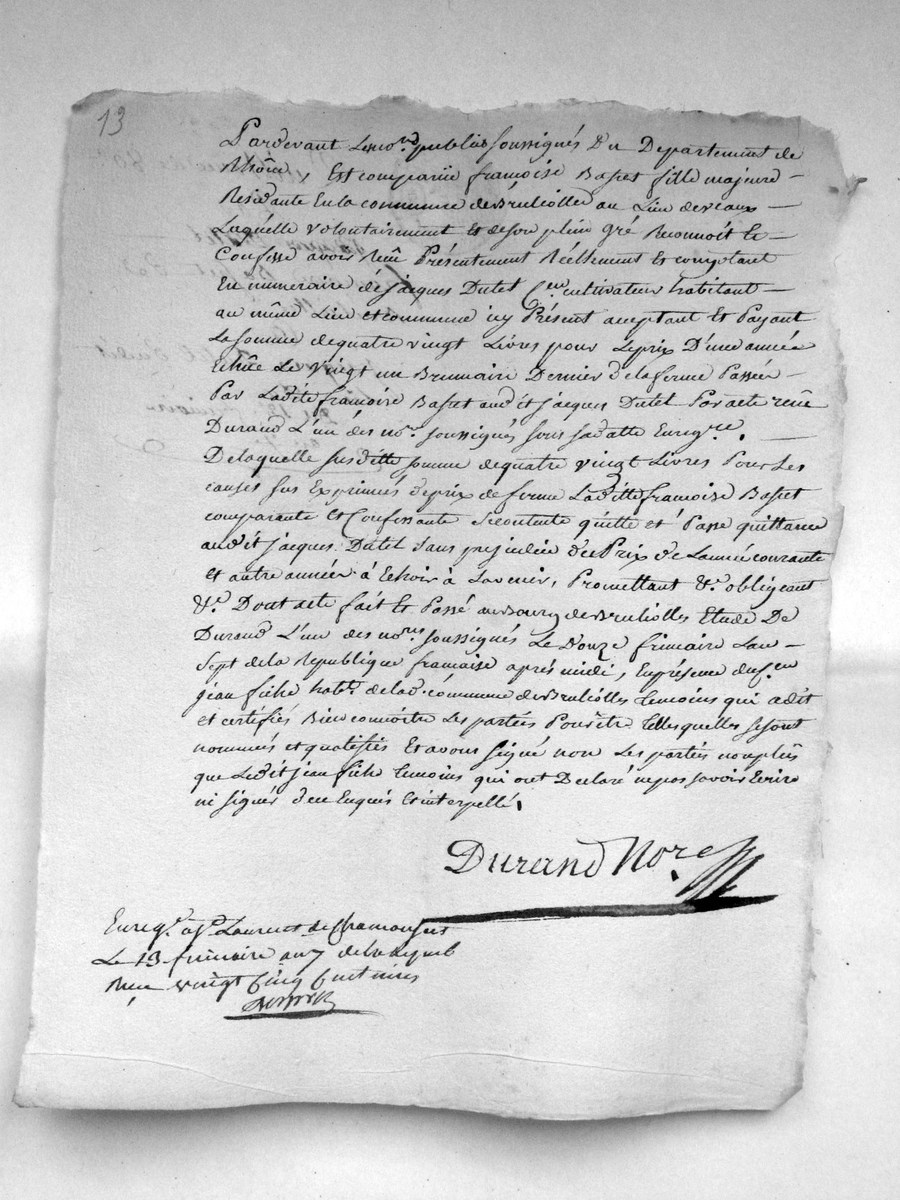 13
Pardevant Les no.rs publics soussignés Du Departement de
Rhône, Est comparüe françoise Basset fille majeure –
Residante En la commune de Brulioles au Lieu de veaux –
Laquelle volontairement et de son plein gré Reconnoit Et
Confesse avoir Reçu Présentement Réellement Et comptant
En numeraire de jacques Dutel C.en cultivateur habitant –
au même Lieu et commune icy Présent acceptant Et Payant
La somme de quatre vingt Livres pour Le prix D'une année
Echue Le vingt un Brumaire Dernier de la ferme Passée –
Par Ladite françoise Basset audit jacques Dutel Par acte reçu
Durand L'un des no.rs soussignés sous sa datte Enreg.ré. –
De laquelle susditte somme de quatre vingt Livres Pour Les
causes sus Exprimées de prix de ferme Laditte françoise Basset
comparante Et Confessante se contente quitte et Passe quittance
audit jacques Dutel sans prejudice du Prix de L'année courante
et autre année à Echoir à L'avenir, Promettant &.a obligeant
&.a Dont acte fait Et Passé au Bourg de Brulioles Etude De
Durand L'un des no.res soussignés Le Douze frimaire L'an –
Sept de la Republique française après midi, En présence du C.en
jean fiche hab.t de lad. commune de Brulioles temoins qui a dit
et certifiés Bien connoitre Les parties Pour être telles quelles se sont
nommés et qualifiés Et avons signé non Les parties non plus
que Ledit jean fiche temoins qui ont Declaré ne pas savoir Ecrire
ni signer de ce Enquis Et interpellé.
Durand No.re
Enreg.é a S.t Laurent de Chamousset
Le 13 frimaire an 7 de la repub
Reçu vingt Cinq Centimes